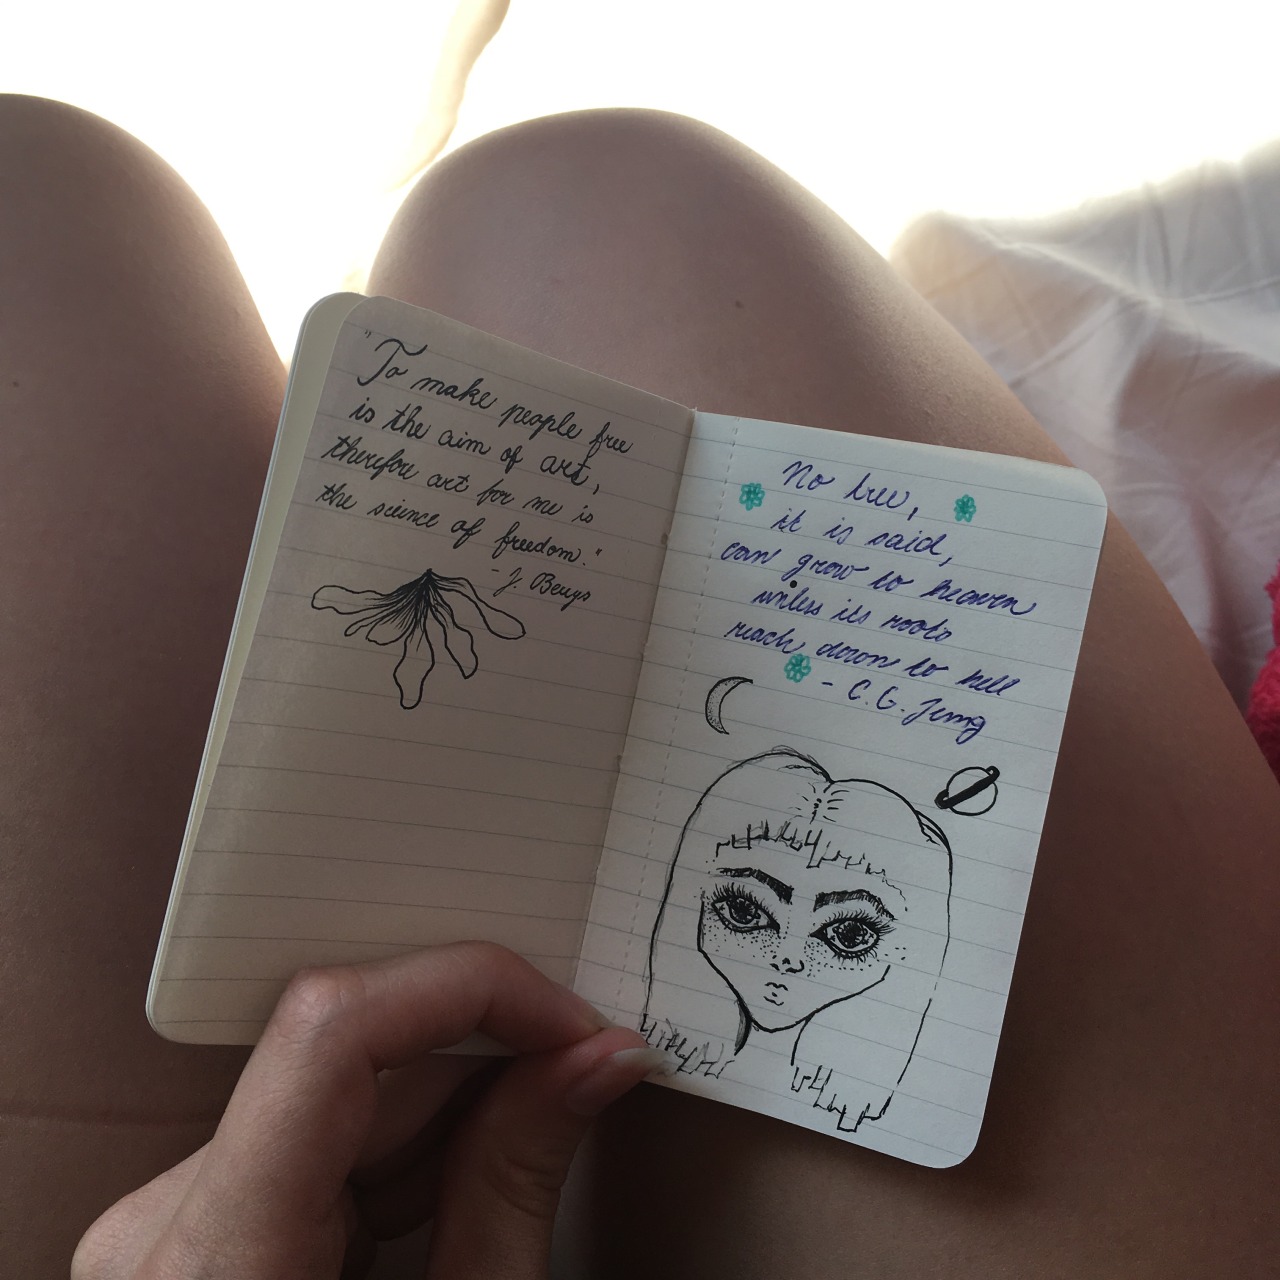 "To make people free
is the aim of art,
therefore art for me is
the science of freedom."
- J. Beuys
No tree,
it is said,
can grow to heaven
unless its roots
reach down to hell
- C. G. Jung